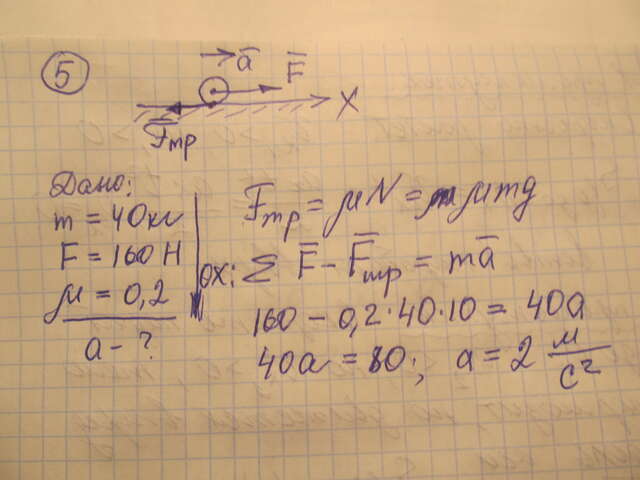 5
a̅
F̅
X
F̅тр
Дано:
m = 40кг
F = 160 Н
μ = 0,2
a - ?
Fтр = μN = μmg
ox: Σ F̅ - F̅тр = ma̅
160 - 0,2·40·10 = 40a
40a = 80; a = 2 м/с²